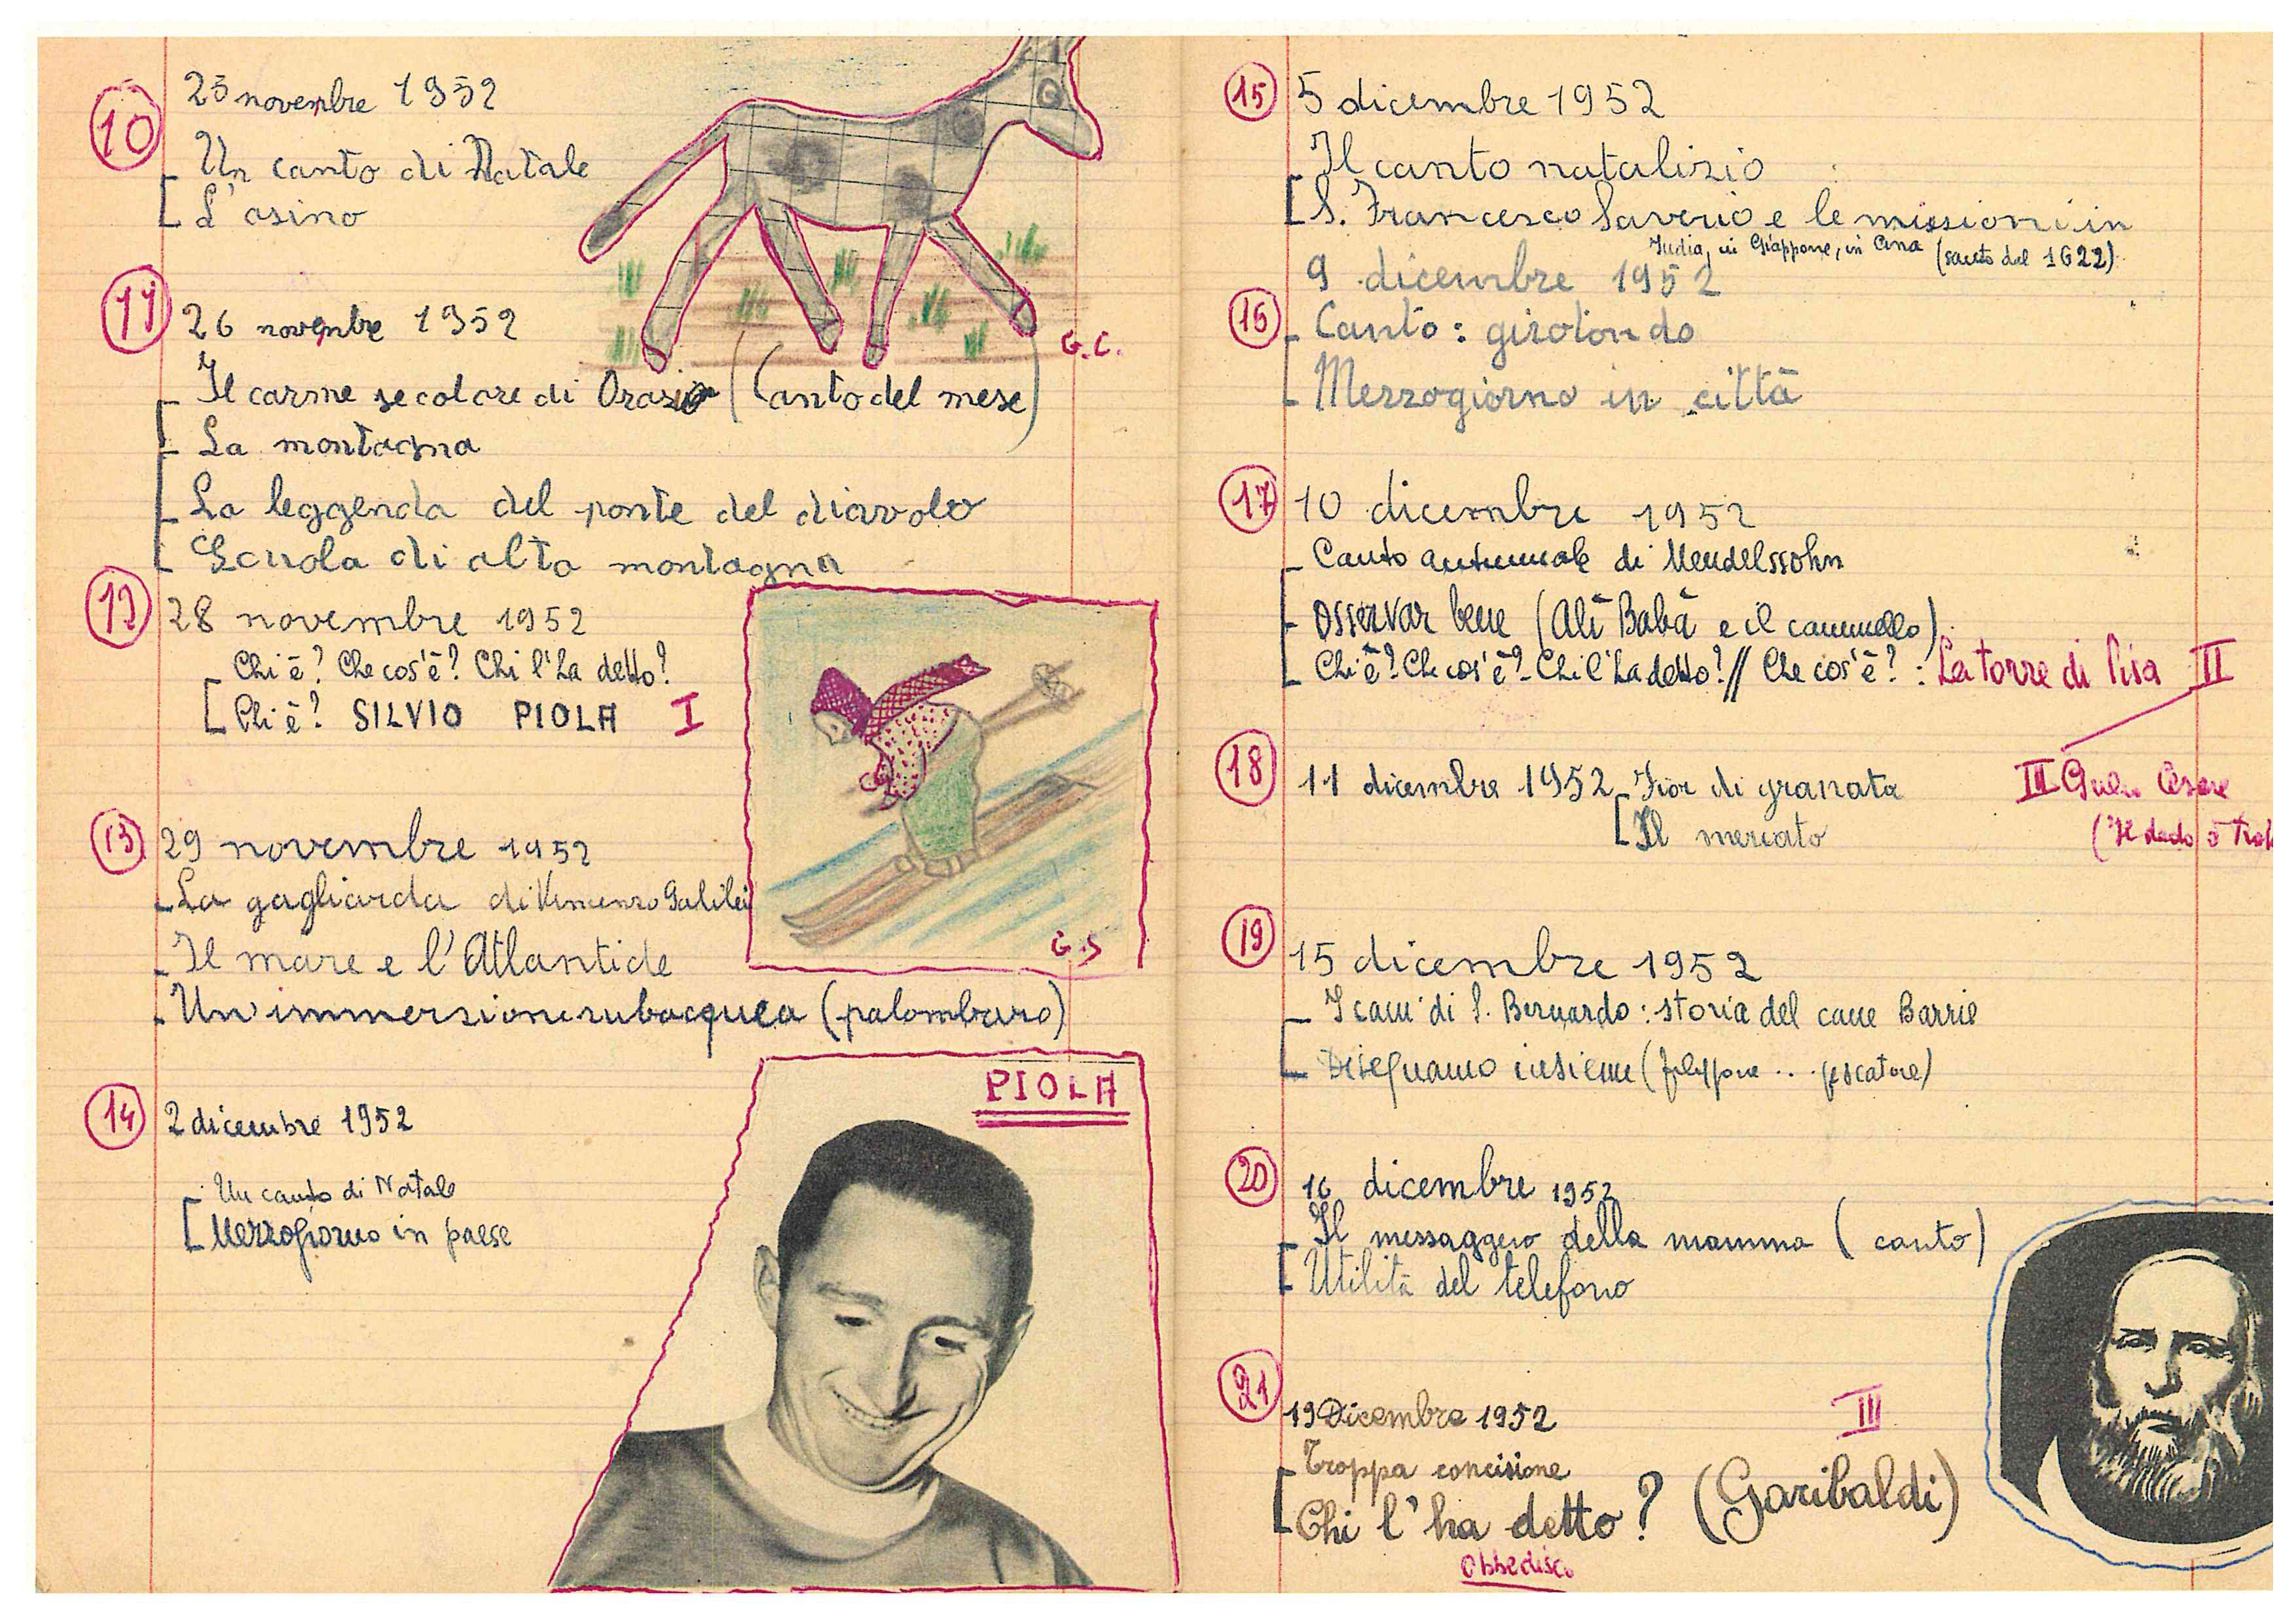 10
25 novembre 1952
- Un canto di Natale
- L'asino
G.C.
11
26 novembre 1952
- Il carme secolare di Orazio (Canto del mese)
- La montagna
- La leggenda del ponte del diavolo
- Scuola di alta montagna
12
28 novembre 1952
Chi è? Che cos'è? Chi l'ha detto?
Chi è? SILVIO PIOLA I
G.S
13
29 novembre 1952
- La gagliarda di Vincenzo Galilei
- Il mare e l'Atlantide
- Un'immersione subacquea (palombaro)
14
2 dicembre 1952
- Un canto di Natale
- Mezzogiorno in paese
PIOLA
15
5 dicembre 1952
- Il canto natalizio
- S. Francesco Saverio e le missioni in
India, in Giappone, in Cina (santo dal 1622)
9 dicembre 1952
16
- Canto: girotondo
- Mezzogiorno in città
17
10 dicembre 1952
- Canto autunnale di Mendelssohn
- Osservar bene (Alì Babà e il cammello)
- Chi è? Che cos'è? - Chi l'ha detto? // Che cos'è?: La torre di Pisa II
18
11 dicembre 1952 - Fior di granata
- Il mercato
III Giulio Cesare
(Il dado è
19
15 dicembre 1952
- I cani di S. Bernardo: storia del cane Barrie
- Disegnamo insieme ( ... pescatore)
20
16 dicembre 1952
- Il messaggero della mamma (canto)
- Utilità del telefono
21
19 Dicembre 1952 III
- Troppa concisione
- Chi l'ha detto? (Garibaldi)
Obbedisco